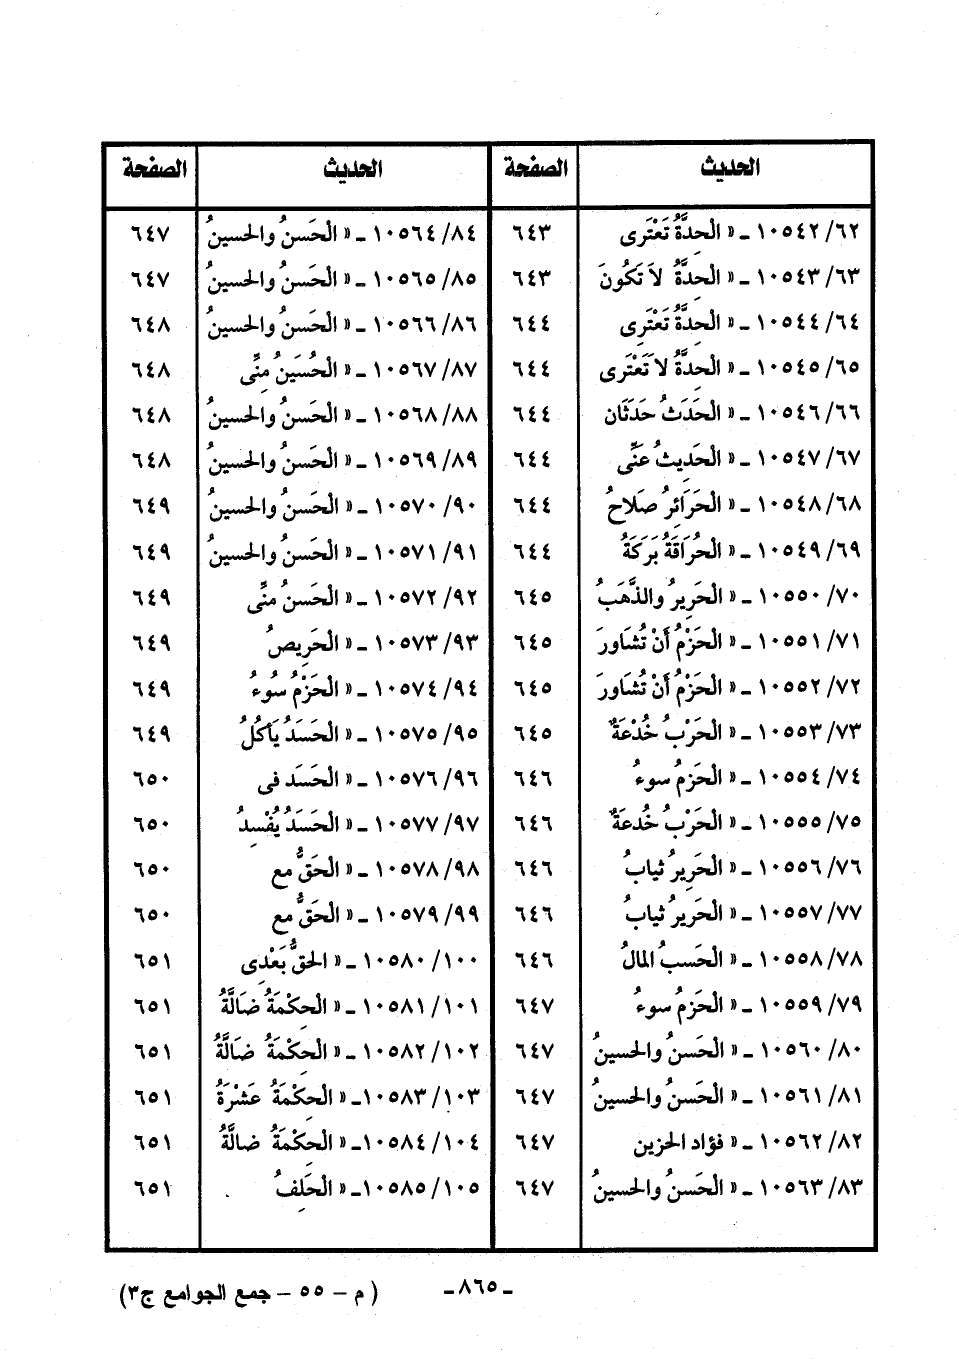 الحديث الصفحة الحديث الصفحة
٦٢/ ١٠٥٤٢ ـ « الْحِدَّةُ تَعْتَرِى ٦٤٣ ٨٤/ ١٠٥٦٤ ـ « الْحَسنُ والحسينُ ٦٤٧
٦٣/ ١٠٥٤٣ ـ « الْحِدَّةُ لاَ تَكُونَ ٦٤٣ ٨٥/ ١٠٥٦٥ ـ « الْحَسنُ والحسينُ ٦٤٧
٦٤/ ١٠٥٤٤ ـ « الْحِدَّةُ تَعْتَرِى ٦٤٤ ٨٦/ ١٠٥٦٦ ـ « الْحَسنُ والحسينُ ٦٤٨
٦٥/ ١٠٥٤٥ ـ « الْحِدَّةُ لاَ تَعْتَرى ٦٤٤ ٨٧/ ١٠٥٦٧ ـ « الْحُسَينُ مِنِّى ٦٤٨
٦٦/ ١٠٥٤٦ ـ « الْحَدَثُ حَدَثَان ٦٤٤ ٨٨/ ١٠٥٦٨ ـ « الْحَسنُ والحسينُ ٦٤٨
٦٧/ ١٠٥٤٧ ـ « الْحَدِيثُ عَنِّى ٦٤٤ ٨٩/ ١٠٥٦٩ ـ « الْحَسنُ والحسينُ ٦٤٨
٦٨/ ١٠٥٤٨ ـ « الْحَرَائِرُ صَلاحُ ٦٤٤ ٩٠/ ١٠٥٧٠ ـ « الْحَسنُ والحسينُ ٦٤٩
٦٩/ ١٠٥٤٩ ـ « الْحُرَاقَةُ بَرَكَةُ ٦٤٤ ٩١/ ١٠٥٧١ ـ « الْحَسنُ والحسينُ ٦٤٩
٧٠/ ١٠٥٥٠ ـ « الْحَرِيرُ والذَّهَبُ ٦٤٥ ٩٢/ ١٠٥٧٢ ـ « الْحَسنُ منِّى ٦٤٩
٧١/ ١٠٥٥١ ـ « الْحَزْمُ أَنْ تُشَاورَ ٦٤٥ ٩٣/ ١٠٥٧٣ ـ « الْحَرِيصُ ٦٤٩
٧٢/ ١٠٥٥٢ ـ « الْحَزْمُ أَنْ تُشَاورَ ٦٤٥ ٩٤/ ١٠٥٧٤ ـ « الْحَزْمُ سُوءُ ٦٤٩
٧٣/ ١٠٥٥٣ ـ « الْحَرْبُ خُدْعَةٌ ٦٤٥ ٩٥/ ١٠٥٧٥ ـ « الْحَسَدُ يَأكُلُ ٦٤٩
٧٤/ ١٠٥٥٤ ـ « الْحَزمُ سوءُ ٦٤٦ ٩٦/ ١٠٥٧٦ ـ « الْحَسَد فى ٦٥٠
٧٥/ ١٠٥٥٥ ـ « الْحَرْبُ خُدعَةٌ ٦٤٦ ٩٧/ ١٠٥٧٧ ـ « الْحَسَدُ يُفْسِدُ ٦٥٠
٧٦/ ١٠٥٥٦ ـ « الْحَرِيرُ ثيابُ ٦٤٦ ٩٨/ ١٠٥٧٨ ـ « الْحَقُّ مع ٦٥٠
٧٧/ ١٠٥٥٧ ـ « الْحَريرُ ثيابُ ٦٤٦ ٩٩/ ١٠٥٧٩ ـ « الْحَقُّ مع ٦٥٠
٧٨/ ١٠٥٥٨ ـ « الْحَسبُ المالُ ٦٤٦ ١٠٠/ ١٠٥٨٠ ـ « الحقُّ بَعْدِى ٦٥١
٧٩/ ١٠٥٥٩ ـ « الْحَزمُ سوءُ ٦٤٧ ١٠١/ ١٠٥٨١ ـ « الْحِكْمَةُ ضَالَّةُ ٦٥١
٨٠/ ١٠٥٦٠ ـ « الْحَسنُ والحسينُ ٦٤٧ ١٠٢/ ١٠٥٨٢ ـ « الْحِكْمَةُ ضَالَّةُ ٦٥١
٨١/ ١٠٥٦١ ـ « الْحَسنُ والحسينُ ٦٤٧ ١٠٣/ ١٠٥٨٣ـ « الْحِكْمَةُ عَشْرَةُ ٦٥١
٨٢/ ١٠٥٦٢ ـ « فؤاد الحزين ٦٤٧ ١٠٤/ ١٠٥٨٤ـ « الْحِكْمَةُ ضالَّةُ ٦٥١
٨٣/ ١٠٥٦٣ ـ « الْحَسنُ والحسينُ ٦٤٧ ١٠٥/ ١٠٥٨٥ـ « الْحَلِفُ ٦٥١
ـ ٨٦٥ ـ ( م – ٥٥ – جمع الجوامع ج٣)